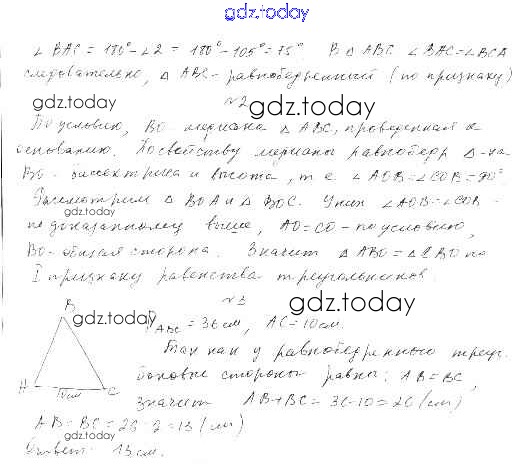 gdz.today
∠BAC = 180° - ∠2 = 180° - 105° = 75° В △ABC ∠BAC = ∠BCA
следовательно, △ABC - равнобедренный (по признаку)
gdz.today №2 gdz.today
По условию, BO - медиана △ABC, проведенная к
основанию. По свойству медианы равнобедр △-ка
BO - биссектриса и высота, т.е. ∠AOB = ∠COB = 90°
Рассмотрим △BOA и △BOC. У них ∠AOB = ∠COB -
gdz.today
по доказанному выше, AO = CO - по условию,
BO - общая сторона. Значит △ABO = △ BO по
I признаку равенства треугольников.
№3
gdz.today
B gdz.today P ABC = 36 см, AC = 10 см.
Так как у равнобедренного треуг.
боковые стороны равны: AB = BC,
A 10 см C
значит AB + BC = 36 - 10 = 26 (см)
AB = BC = 26 : 2 = 13 (см)
gdz.today
Ответ: 13 см.